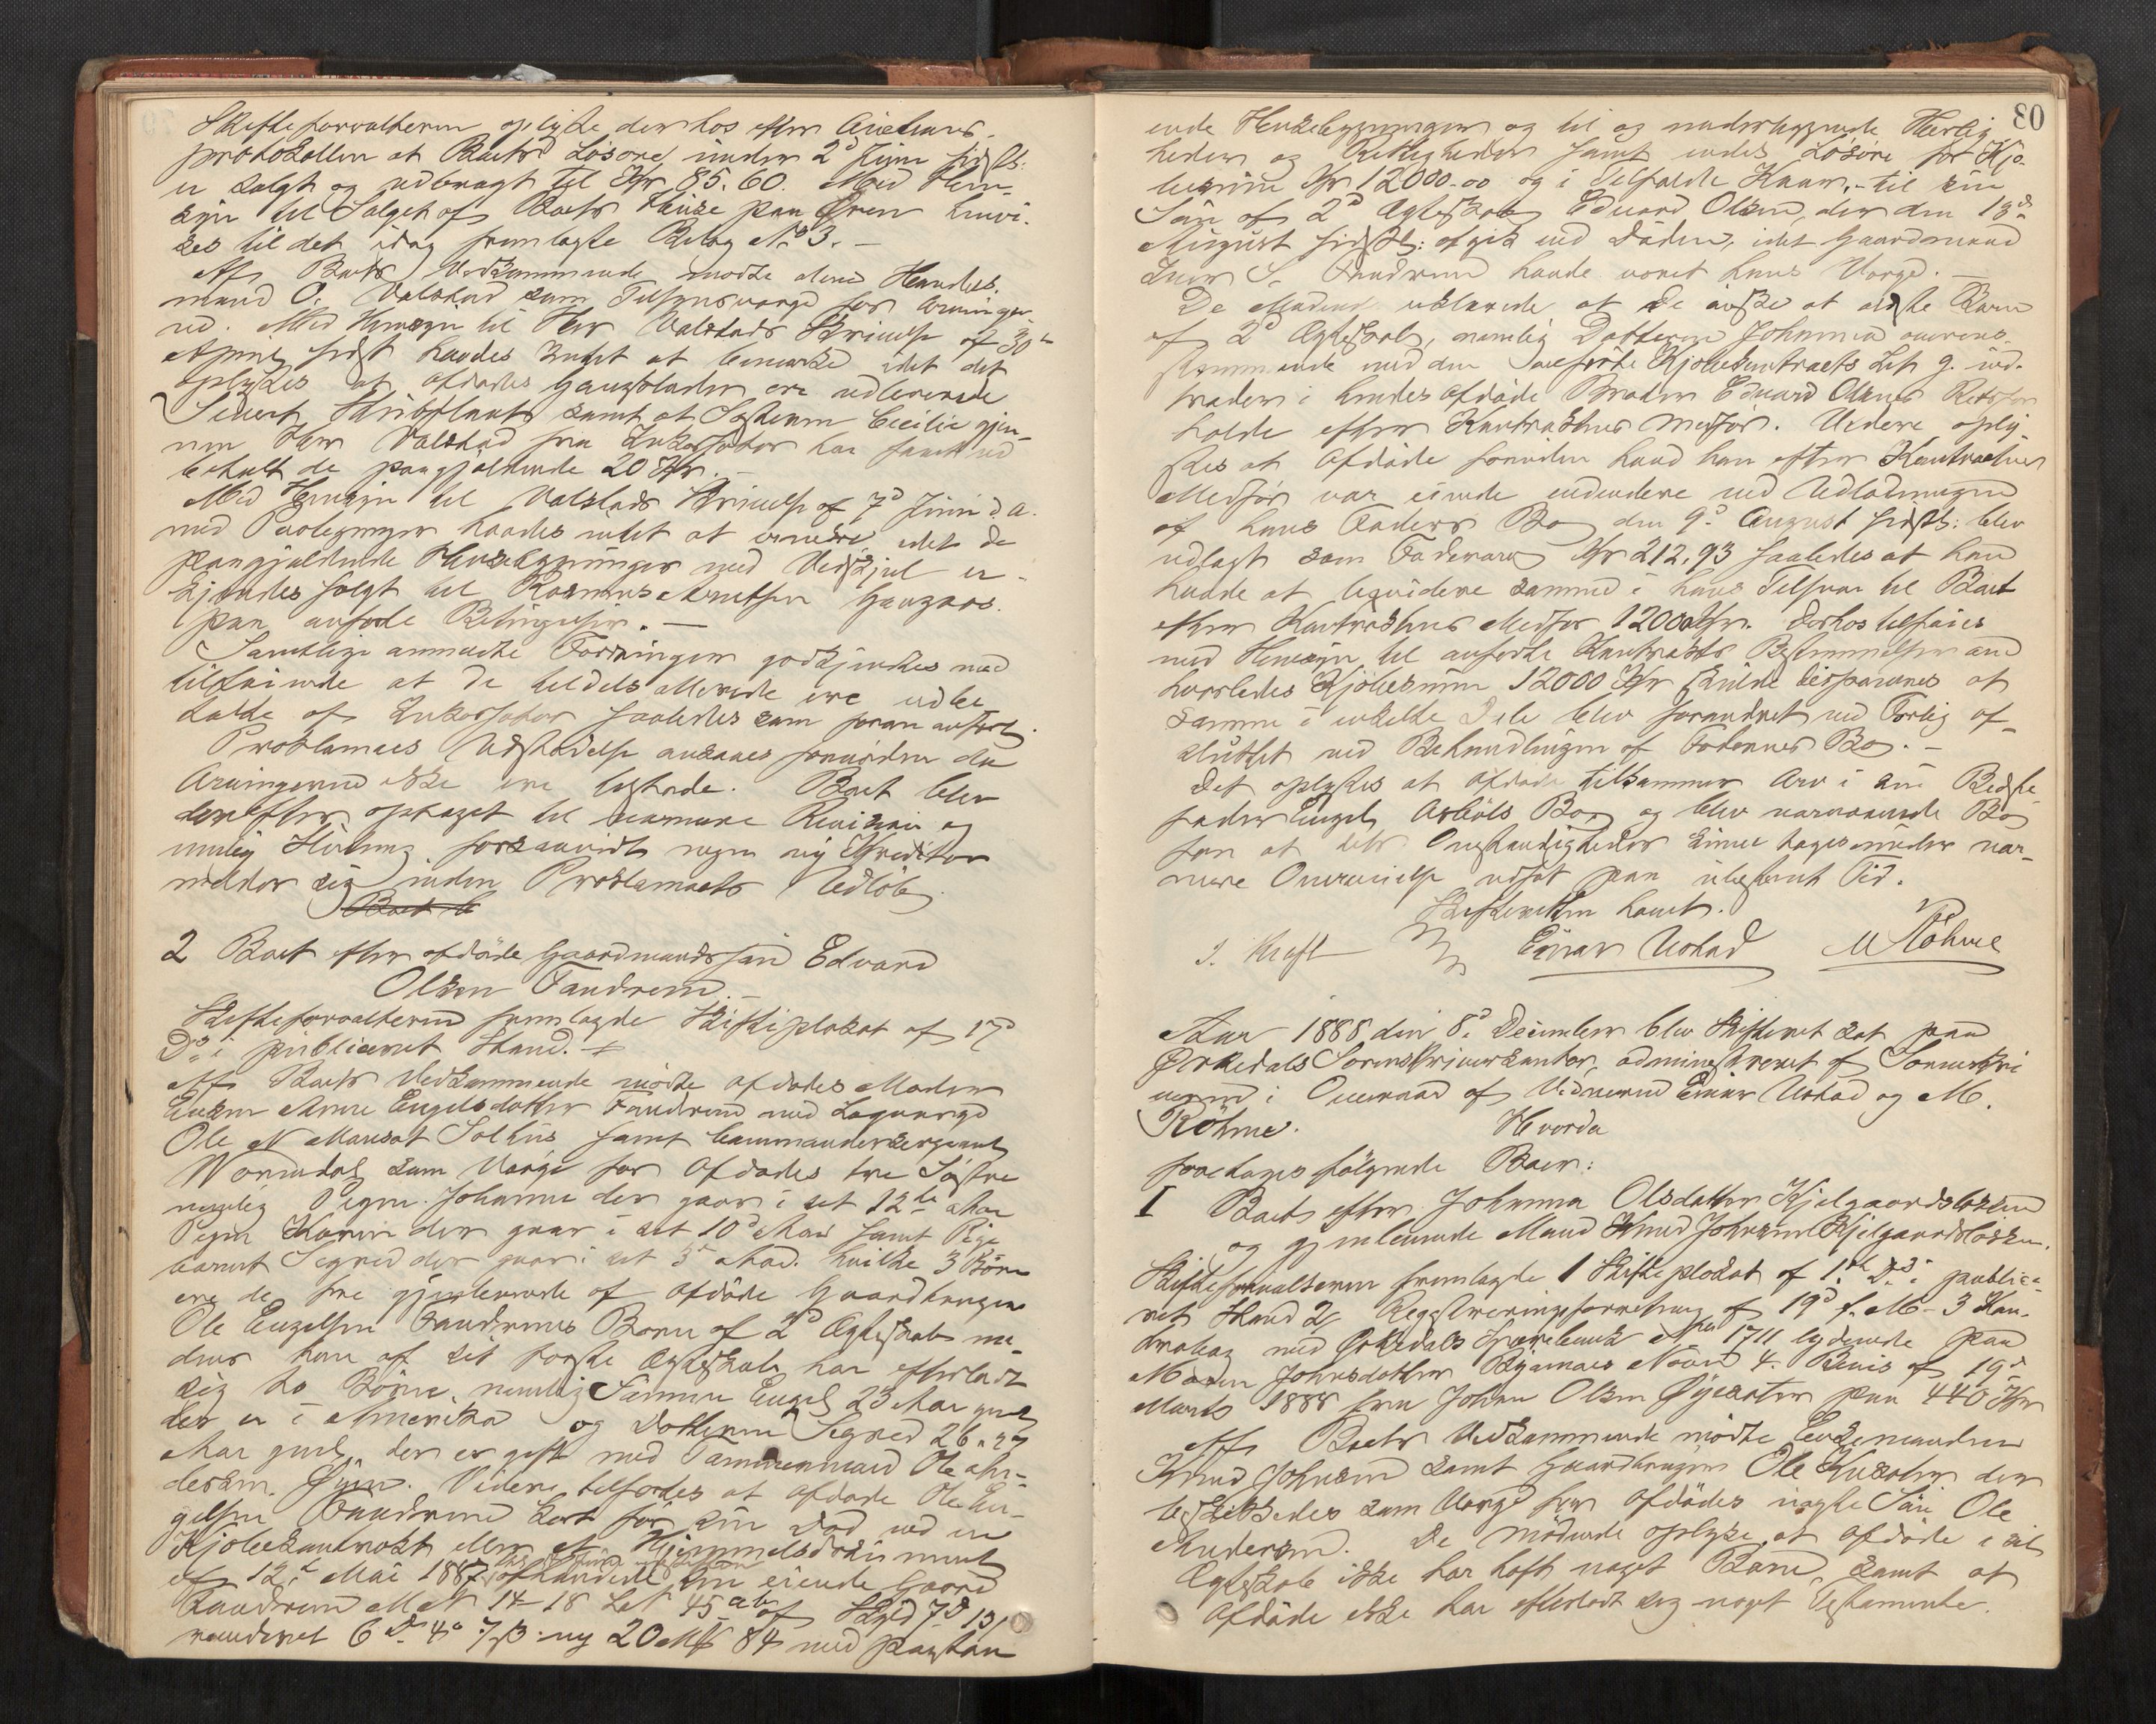 Skifteforvalteren oplyste derhos efter Auctions-
protokollen at Boets Løsøre under 2d Juni sidstl:
er solgt og udbragt til Kr 85.60. Med Hen-
syn til Salget af Boets Huse paa Øren henvi-
ses til det idag fremlagte Bilag No 3. —
Af Boets Vedkommende mødte alene Handels-
mand O. Valstad som Tilsynsværge for Arvinger-
ne. Med Hensyn til Hr Valstads Skrivelse af 30te
April sidst havdes intet at bemærke idet det
oplystes at Afdødes Gangklæder ere udleverede
Sivert samt at Søsteren Cecilie gjen-
nem Hr Valstad fra Inkassator har faaet ud-
betalt de paagjældende 20 Kr. —
Med Hensyn til Valstads Skrivelse af 7d Juni d. A.
med Paategninger havdes intet at erindre idet de
paagjældende Husebygninger med Vedskjul er-
kjendes solgt til Rasmus Arntsen
paa anførte Betingelser. —
Samtlige anmeldte Fordringer godkjendtes med
tilføiende at de tildels allerede ere udbe-
talte af Inkassator saaledes som foran anført.
Proklamas Udstedelse ansaaes fornøden da
Arvingerne ikke ere tilstede. Boet blev
derefter optaget til nærmere Revision og
mulig Slutning forsaavidt ingen ny Kreditor
melder sig inden Proklamaets Udløb.
Boet b
2 Boet efter afdøde Gaardmandssøn Edvard
Olsen Fandrem. —
Skifteforvalteren fremlagde Skifteplakat af 17d
Ds i publiceret Stand. —
Af Boets Vedkommende mødte afdødes Moder
Enken Anne Engelsdatter Fandrem med Laugværge
Ole N Solhus samt Commandersergeant
Wormdal som Værge for Afdødes tre Søstre
nemlig Pigen Johanna der gaar i sit 12te Aar
Pigen Karen der gaar i sit 10d Aar samt Pige-
barnet Segred der gaar i sit 3d Aar. hvilke 3 Børn
ere de tre gjenlevende af afdøde Gaardbruger
Ole Engelsen Fandrems Børn af 2d Ægteskab me-
dens han af sit første Ægteskab har efterladt
sig to Børn, nemlig Sønnen Engel 23 Aar gml
der er i Amerika og Datteren Segred 26 a 27
Aar gml, der er gift med Tømmermand Ole An-
dersen Øyen. Videre tilføies at afdøde Ole En-
gelsen Fandrem kort før sin Død ved en
Kjøbekontrakt eller et Hjemmelsdokument
af 12te Mai 1887 afhændede sin eiende Gaard
Fandrem M No 14 L No 45 ab af Skyld 7 D 13/
revideret 6 D 4 o 7 β. ny 20 Mk 84 med paastaa-
80
ende Husebygninger og til og underliggende Herlig-
heder og Rettigheder samt endel Løsøre for Kjø-
besum Kr 12000.00 og i Tilfælde Kaar, - til sin
Søn af 2d Ægteskab Edvard Olsen, der den 18de
August sidstl: afgik ved Døden, idet Gaardmand
Iver S. Fandrem havde været hans Værge. —
De Mødende erklærede at de ønske at ældste Barn
af 2d Ægteskab, nemlig Datteren Johanna overens-
stemmende med den anførte Kjøbekontrakts Lit g. ind-
træder i hendes afdøde Broder Edvard Olsens Retsfor-
holde efter Kontraktens Medfør. Videre oply-
stes at Afdøde foruden hvad han efter Kontraktens
Medfør var eiende endvidere ved Udlodningen
af hans Faders Bo den 9d August sidstl: blev
udlagt som Fadersarv Kr 212.93 saaledes at han
havde at liqvidere samme i hans Tilsvar til Boet
efter Kontraktens Medfør 12000 Kr. Derhos tilføies
med Hensyn til anførte Kontrakts Bestemmelser om
hvorledes Kjøbesum 12000 Kr skulde disponeres at
samme i enkelte Dele blev forandret ved Forlig af-
sluttet ved Behandlingen af Faderens Bo. —
Det oplystes at Afdøde tilkommer Arv i sin Bedste-
fader Engel Asbøls Bo og blev nærværende Bo
for at dets Omstændigheder kunne tages under nær-
mere Overveielse udsat paa ubestemt Tid.
Skifteretten hævet.
J. Kraft Einar Ustad M Røhme
Aar 1888 den 8d December blev Skifteret sat paa
Ørkedals Sorenskriverkontor, administreret af Sorenskri-
veren i Overvær af Vidnerne Einar Ustad og M.
Røhme. Hvorda
foretages følgende Boer:
I Boet efter Johanna Olsdatter Kjelgaardsløkken
og gjenlevende Mand Knud Johnsen Kjelgaardsløkken.
Skifteforvalteren fremlagde 1 Skifteplakat af 1ste Ds. public-
ret Stand 2, Registreringsforretning af 19d f. M. - 3 Kon-
trabog med Ørkedals Sparebank No 1711 lydende paa
Maren Johnsdatter 4. Bevis af 19de
Marts 1888 fra Johan Olsen paa 440 Kr
Af Boets Vedkommende mødte Enkemanden
Knud Johnsen samt Gaardbruger Ole der
beskikkedes som Værge for Afdødes uægte Søn Ole
Andersen. De mødende oplyste, at afdøde i sit
Ægteskab ikke har havt noget Barn, samt at
Afdøde ikke har efterladt sig noget Testamente.